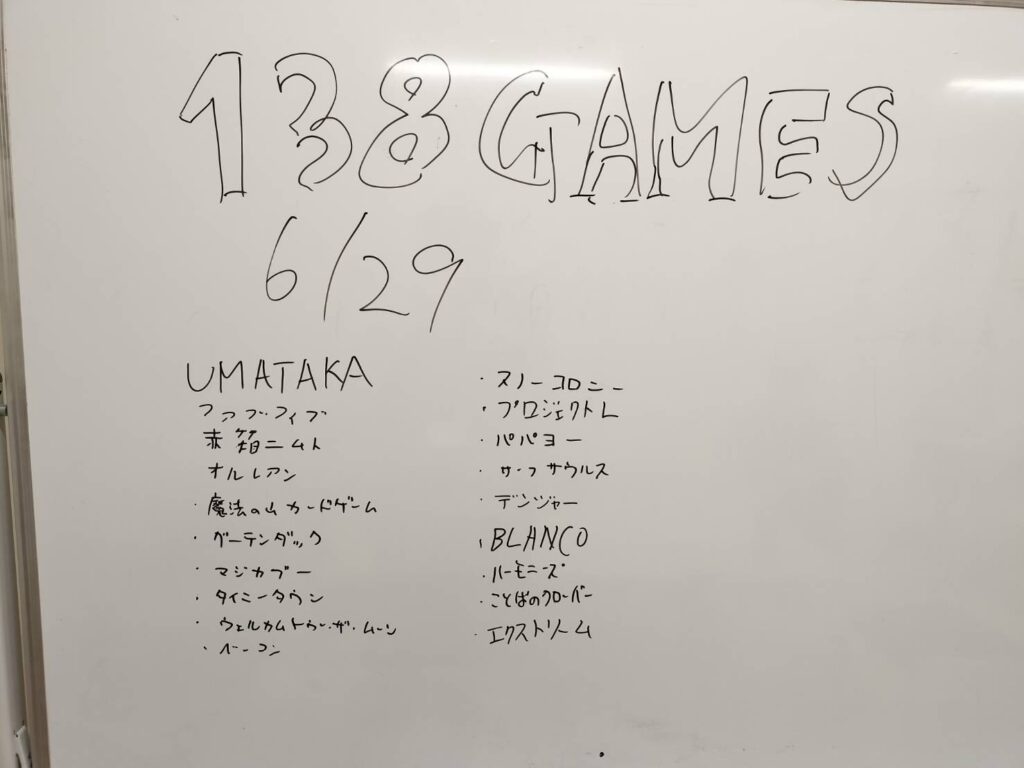 138 GAMES
6/29
UMATAKA
ファブフィブ
赤箱ニムト
オルレアン
・魔法の山カードゲーム
・グーテンダック
・マジカブー
・タイニータウン
・ウェルカムトゥ・ザ・ムーン
・ベーコン
・スノーコロニー
・プロジェクトL
・パパヨー
・サーフサウルス
・デンジャー
・BLANCO
・ハーモニーズ
・ことばのクローバー
・エクストリーム